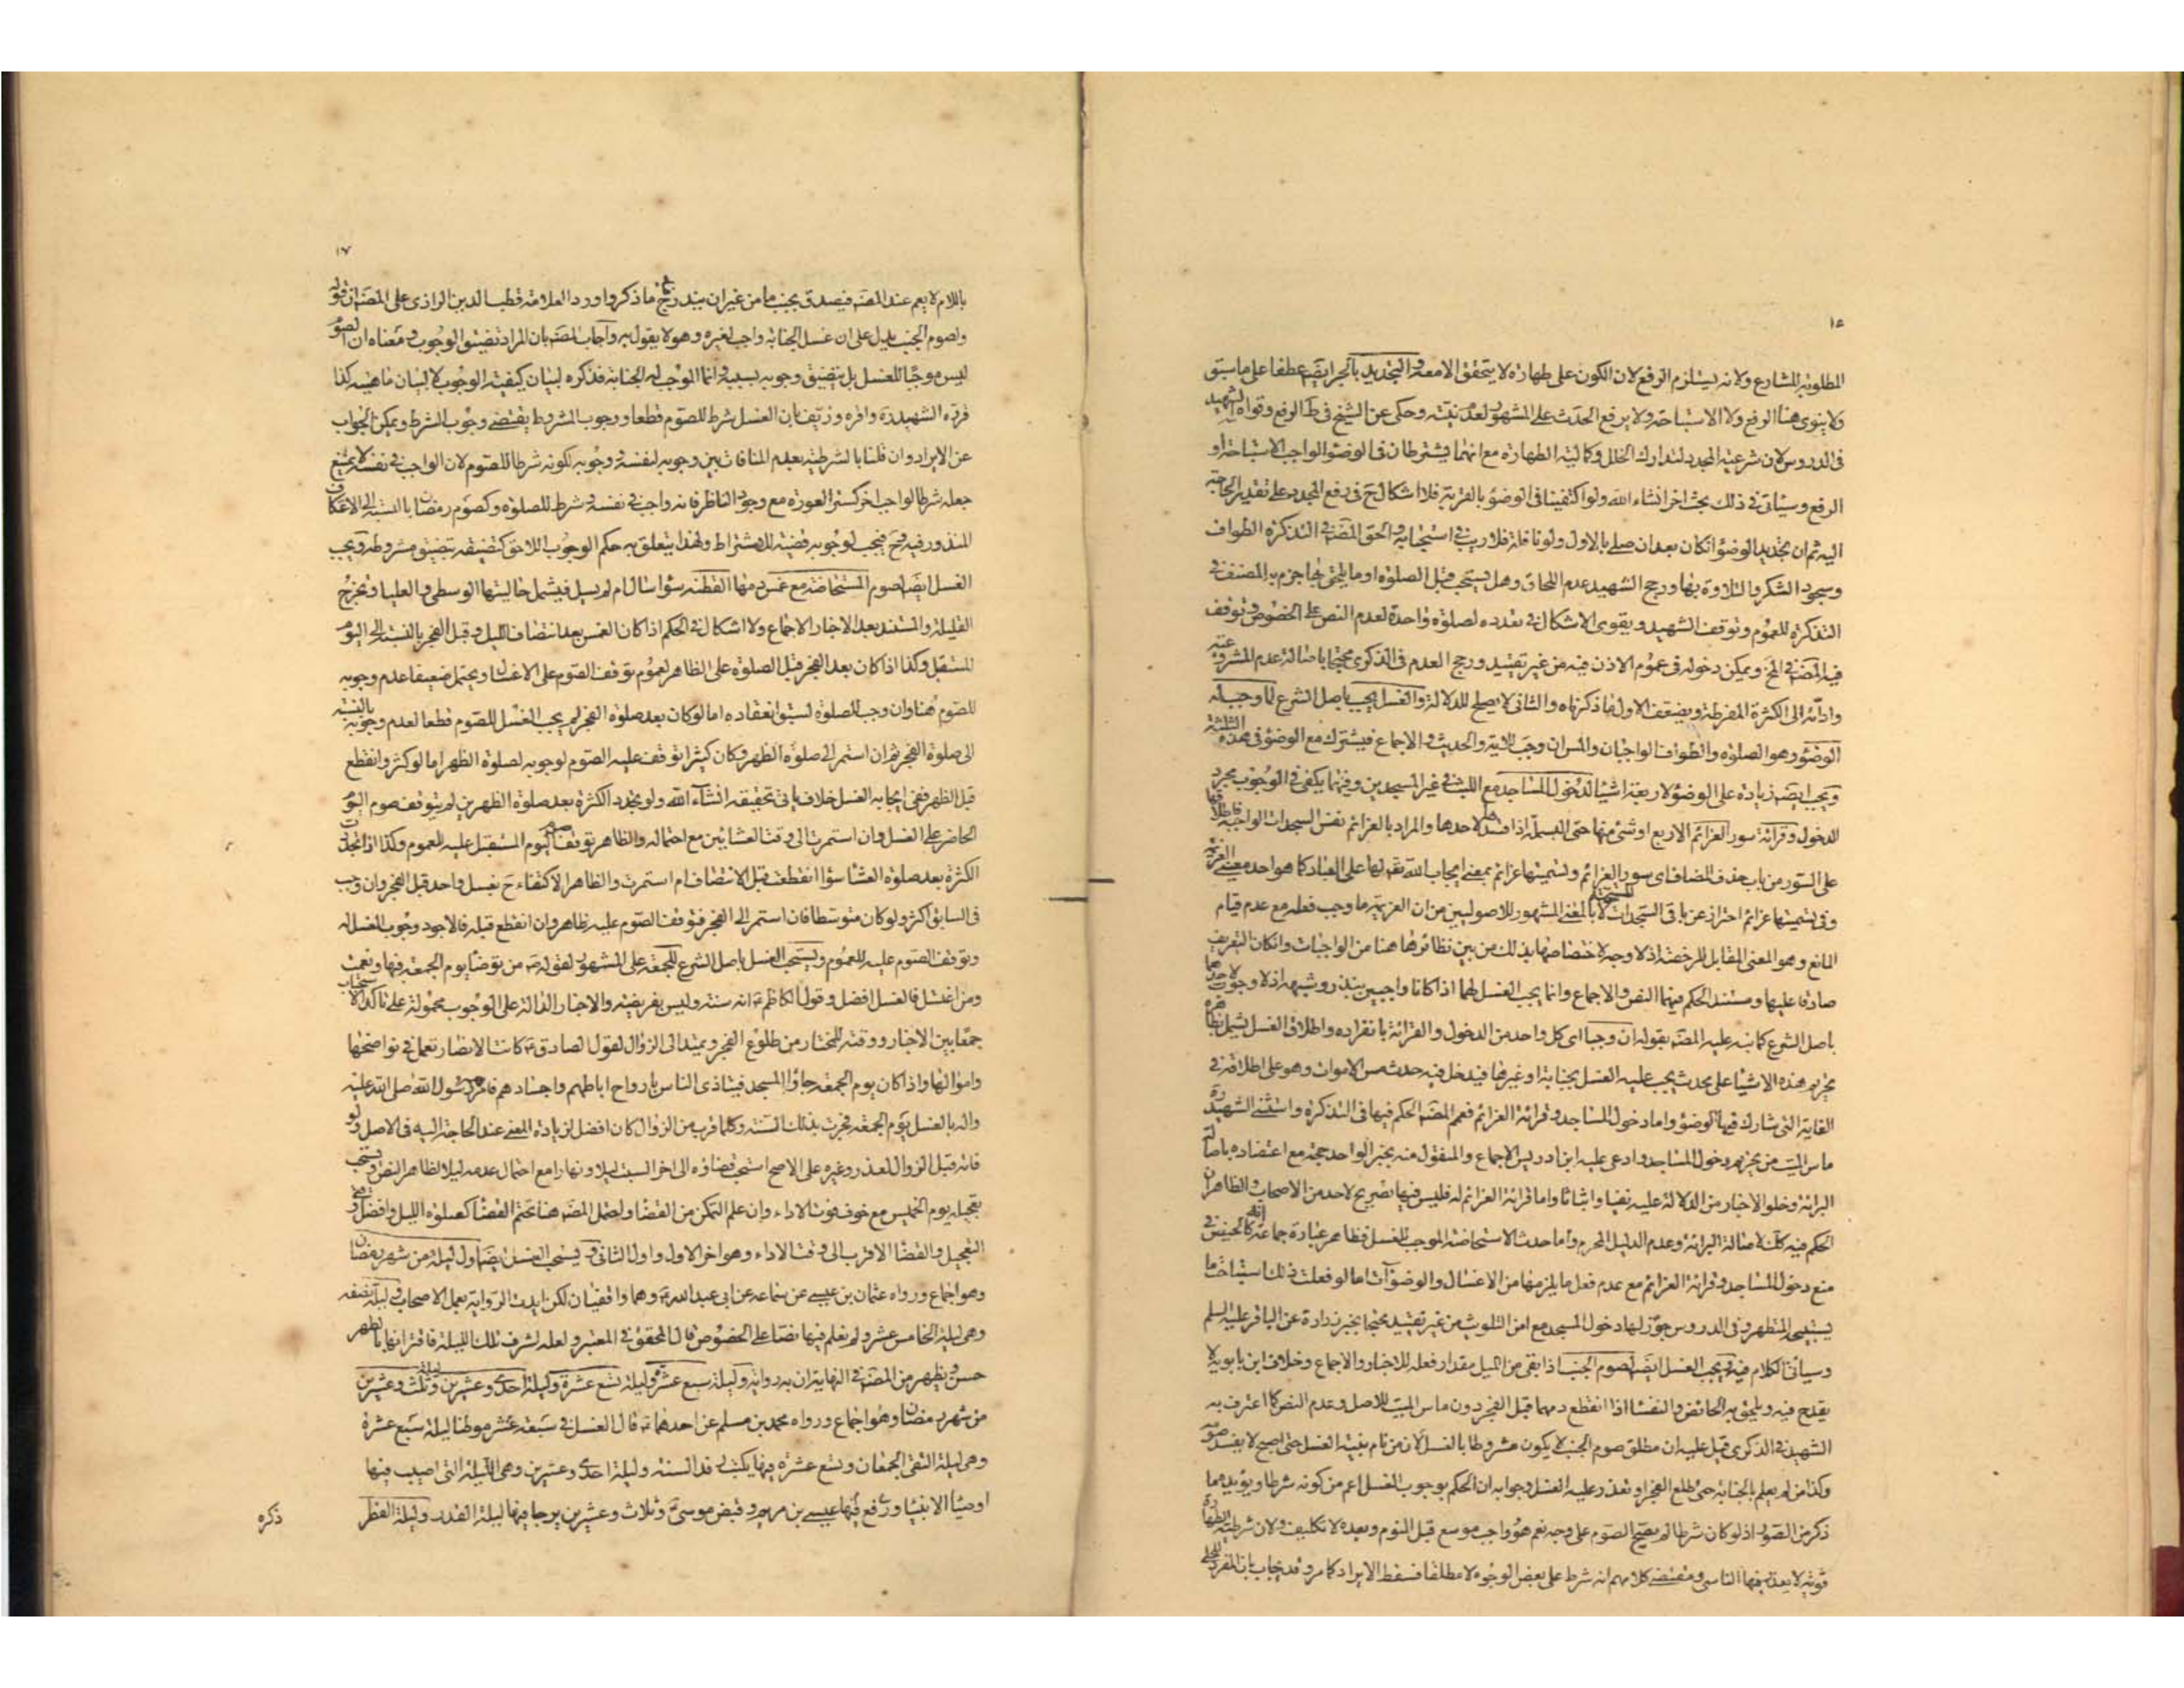 ١٥
المطلوبة للشارع ولانه يستلزم الرفع لان الكون على طهارة لا يتحقق الا معه والتجديد بالجر ايضا عطفا على ما سبق
ولا ينوى هنا الرفع ولا الاستباحة ولا يرفع الحدث على المشهور لعدم نيته وحكى عن الشيخ فى ط الرفع وقواه الشهيد
فى الدروس لان شرعية المجدد لتدارك الخلل وكاليته الطهارة مع انهما يشترطان فى الوضوء الواجب الاستباحة او
الرفع وسيأتى فى ذلك بحث اخر انشاء الله ولو اكتفينا فى الوضوء بالقربة فلا اشكال ح فى رفع المجدد على تقدير الحاجة
اليه ثم ان تجديد الوضوء انكان بعد ان صلى بالاول ولو نافلة فلا ريب فى استحبابه والحق المصنف فى التذكرة الطواف
وسجود الشكر والتلاوة بها ورجح الشهيد عدم اللحاق وهل يستحب قبل الصلوة او ما يلحق بها جزم به المصنف فى
التذكرة للعموم وتوقف الشهيد ويقوى الاشكال فى تعدده لصلوة واحدة لعدم النص على الخصوص وتوقف
فيه المصنف فى المخ ويمكن دخوله فى عموم الاذن فيه من غير تقييد ورجح العدم فى الذكرى محتجا باصالة عدم المشروعية
وادائه الى الكثرة المفرطة ويضعف الاول بما ذكرناه والثانى لا يصلح للدلالة والغسل يجب باصل الشرع لما وجب له
الوضوء وهو الصلوة والطواف الواجبان والمس ان وجب للاية والحديث والاجماع فيشترك مع الوضوء فى هذه الثلثة
ويجب ايضا زيادة على الوضوء لاربعة اشيا لدخول المساجد مع اللبث فى غير المسجدين وفيهما يكفى فى الوجوب مجرد
الدخول وقرائة سور العزائم الاربع او شئ منها حتى البسملة اذا قصدها لاحدها والمراد بالعزائم نفس السجدات الواجبة فاطلاقها
على السور من باب حذف المضاف اى سور العزائم وتسميتها عزائم بمعنى ايجاب الله تعالى لها على العباد كما هو احد معنيى العزيمة
وفى تسميتها عزائم احتراز عن باقى السجدات المستحبة لا بالمعنى المشهور للاصوليين من ان العزيمة ما وجب فعله مع عدم قيام
المانع وهو المعنى المقابل للرخصة اذ لا وجه لاختصاصها بذلك من بين نظائرها هنا من الواجبات وانكان التعريف
صادقا عليها ومستند الحكم فيهما النص والاجماع وانما يجب الغسل لهما اذا كانا واجبين بنذر وشبهه اذ لا وجوب لاحدهما
باصل الشرع كما نبه عليه المصنف بقوله ان وجبا اى كل واحد من الدخول والقرائة بانفراده واطلاق الغسل يشمل
تحريم هذه الاشيا على محدث يجب عليه الغسل بجنابة او غيرها فيدخل فيه حدث مس الاموات وهو على اطلاقه فى
الغاية التى شارك فيها الوضوء واما دخول المساجد وقرائة العزائم فعمم المصنف الحكم فيها فى التذكرة واستثنى الشهيد ره
ماس الميت من تحريم دخول المساجد وادعى عليه ابن ادريس الاجماع والمنقول منه بخبر الواحد حجة مع اعتضاده باصالة
البرائة وخلو الاخبار من الدلالة عليه نفيا واثباتا واما قرائة العزائم له فليس فيها تصريح لاحد من الاصحاب والظاهر ان
الحكم فيه كذلك لاصالة البرائة وعدم الدليل المحرم واما حدث الاستحاضة الموجب للغسل فظاهر عبارة جماعة انه كالحيض فى
منع دخول المساجد وقرائة العزائم مع عدم فعل ما يلزمها من الاغسال والوضوءات اما لو فعلت ذلك استباحت ما
يستبيحه المتطهر وفى الدروس جوز لها دخول المسجد مع امن التلويث من غير تقييد محتجا بخبر زرارة عن الباقر عليه السلم
وسيأتى الكلام فيه ويجب الغسل ايضا لصوم الجنب اذا بقى من الليل مقدار فعله للاخبار والاجماع وخلاف ابن بابويه لا
يقدح فيه ويلحق به الحائض والنفسا اذا انقطع دمهما قبل الفجر دون ماس الميت للاصل وعدم النص كما اعترف به
الشهيد فى الذكرى قيل عليه ان مطلق صوم الجنب لا يكون مشروطا بالغسل لان من نام بنية الغسل حتى اصبح لا يفسد صومه
وكذا من لم يعلم بالجنابة حتى طلع الفجر او تعذر عليه الغسل وجوابه ان الحكم بوجوب الغسل اعم من كونه شرطا ويؤيد هما
ذكر من الصور اذ لو كان شرطا لم يصح الصوم على وجه نعم هو واجب موسع قبل النوم وبعده لا تكليف ولان شرطية الطهارة
قوته لا يعذر فيها الناسى ومقتضى كلامهم انه شرط على بعض الوجوه لا مطلقا فسقط الايراد كما مر وقد يجاب بان المفرد المحلى
١٧
باللام لا يعم عند المصنف فيصدق بجنب ما من غير ان يندرج ما ذكر واورد العلامة قطب الدين الرازى على المصنف ان قوله
ولصوم الجنب يدل على ان غسل الجنابة واجب لغيره وهو لا يقول به واجاب المصنف بان المراد تضيق الوجوب ومعناه ان الصوم
ليس موجبا للغسل بل يتضيق وجوبه بسببه وانما الموجب له الجنابة فذكره لبيان كيفية الوجوب لا لبيان ماهيته كذا
قرره الشهيد ره واقره وزيف بان الغسل شرط للصوم قطعا ووجوب المشروط يقتضى وجوب الشرط ويمكن الجواب
عن الايراد وان قلنا بالشرطية بعدم المنافات بين وجوبه لنفسه ووجوبه لكونه شرطا للصوم لان الواجب فى نفسه لا يمتنع
جعله شرطا لواجب اخر كستر العورة مع وجود الناظر فانه واجب فى نفسه وشرط للصلوة وكصوم رمضان بالنسبة الى الاعتكاف
المنذور فيه وح فيجب لوجوبه قضية للاشتراط ولهذا يتعلق به حكم الوجوب اللاحق كتضيقه بتضيق مشروطه ويجب
الغسل ايضا لصوم المستحاضة مع غمس دمها القطنة سواء سال ام لم يسل فيشمل حالتيها الوسطى والعليا وتخرج
القليلة والمستند بعد الاخبار الاجماع ولا اشكال فى الحكم اذا كان الغمس بعد انتصاف الليل وقبل الفجر بالنسبة الى اليوم
المستقبل وكذا اذا كان بعد الفجر قبل الصلوة على الظاهر لعموم توقف الصوم على الاغسال ويحتمل ضعيفا عدم وجوبه
للصوم هنا وان وجب للصلوة لسبق انعقاده اما لو كان بعد صلوة الفجر لم يجب الغسل للصوم قطعا لعدم وجوبه بالنسبة
الى صلوة الفجر ثم ان استمر الى صلوة الظهر وكان كثيرا توقف عليه الصوم لوجوبه لصلوة الظهر اما لو كثر وانقطع
قبل الظهر ففى ايجابه الغسل خلاف ياتى تحقيقه انشاء الله ولو تجدد الكثرة بعد صلوة الظهرين لم يتوقف صوم اليوم
الحاضر على الغسل وان استمرت الى وقت العشائين مع احتماله والظاهر توقف صوم اليوم المستقبل عليه للعموم وكذا اذا تجددت
الكثرة بعد صلوة العشا سواء انقطعت قبل الانتصاف ام استمرت والظاهر الاكتفاء ح بغسل واحد قبل الفجر وان وجب
فى السابق اكثر ولو كان متوسطا فان استمر الى الفجر فتوقف الصوم عليه ظاهر وان انقطع قبله فالاجود وجوب الغسل له
وتوقف الصوم عليه للعموم ويستحب الغسل باصل الشرع للجمعة على المشهور لقوله ص من توضأ يوم الجمعة فبها ونعمت
ومن اغتسل فالغسل افضل وقول الكاظم ع انه سنة وليس بفريضة والاخبار الدالة على الوجوب محمولة على تاكد الاستحباب
جمعا بين الاخبار ووقته للمختار من طلوع الفجر ويمتد الى الزوال لقول الصادق ع كانت الانصار تعمل فى نواضحها
واموالها واذا كان يوم الجمعة جاؤا المسجد فيتاذى الناس بارواح اباطهم واجسادهم فامر رسول الله صلى الله عليه
واله بالغسل يوم الجمعة فجرت بذلك السنة وكلما قرب من الزوال كان افضل لزيادة المعنى عند الحاجة اليه فى الاصل ولو
فاته قبل الزوال لعذر وغيره على الاصح استحب قضاؤه الى اخر السبت ليلا ونهارا مع احتمال عدمه ليلا لظاهر النص ويستحب
تعجيله يوم الخميس مع خوف فوت الاداء وان علم التمكن من القضا ولعل المصنف هنا تحتم القضا كصلوة الليل وافضل وقتى
التعجيل والقضا الاقرب الى وقت الاداء وهو اخر الاول واول الثانى ويستحب الغسل ايضا اول ليلة من شهر رمضان
وهو اجماع ورواه عثمان بن عيسى عن سماعة عن ابى عبد الله ع وهما واقفيان لكن ايدت الرواية بعمل الاصحاب وليلة نصفه
وهى ليلة الخامس عشر ولم نعلم فيها نصا على الخصوص قال المحقق فى المعتبر ولعله لشرف تلك الليلة فاقترانها بالطهر
حسن ويظهر من المصنف فى النهاية ان به رواية وليلة سبع عشرة وليلة تسع عشرة وليلة احدى وعشرين وليلة ثلث وعشرين
من شهر رمضان وهو اجماع ورواه محمد بن مسلم عن احدهما ع قال الغسل فى سبعة عشر موطنا ليلة سبع عشرة
وهى ليلة التقى الجمعان وتسع عشرة فيها يكتب وفد السنة وليلة احدى وعشرين وهى الليلة التى اصيب فيها
اوصيا الانبيا ورفع فيها عيسى بن مريم وقبض موسى ع وثلاث وعشرين يرجا فيها ليلة القدر وليلة الفطر
ذكره